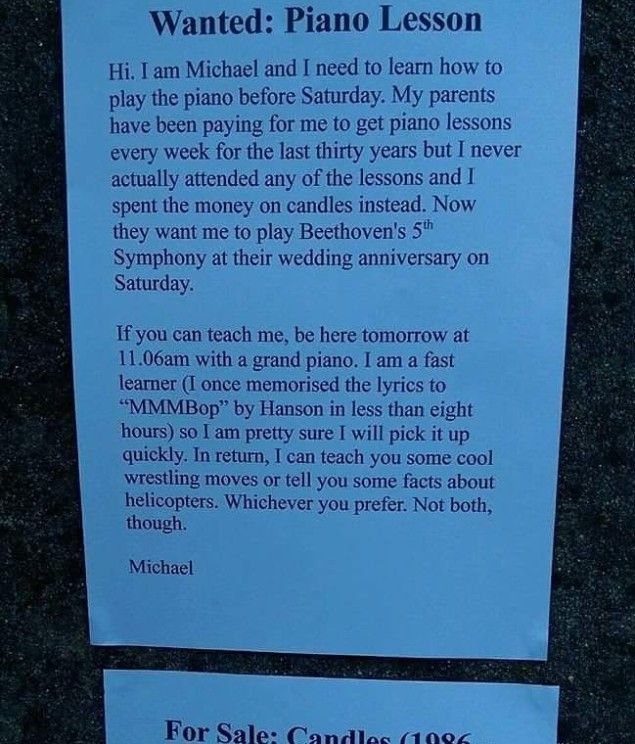 Wanted: Piano Lesson
Hi. I am Michael and I need to learn how to
play the piano before Saturday. My parents
have been paying for me to get piano lessons
every week for the last thirty years but I never
actually attended any of the lessons and I
spent the money on candles instead. Now
they want me to play Beethoven's 5th
Symphony at their wedding anniversary on
Saturday.
If you can teach me, be here tomorrow at
11.06am with a grand piano. I am a fast
learner (I once memorised the lyrics to
“MMMBop” by Hanson in less than eight
hours) so I am pretty sure I will pick it up
quickly. In return, I can teach you some cool
wrestling moves or tell you some facts about
helicopters. Whichever you prefer. Not both,
though.
Michael
For Sale: Candles (1986